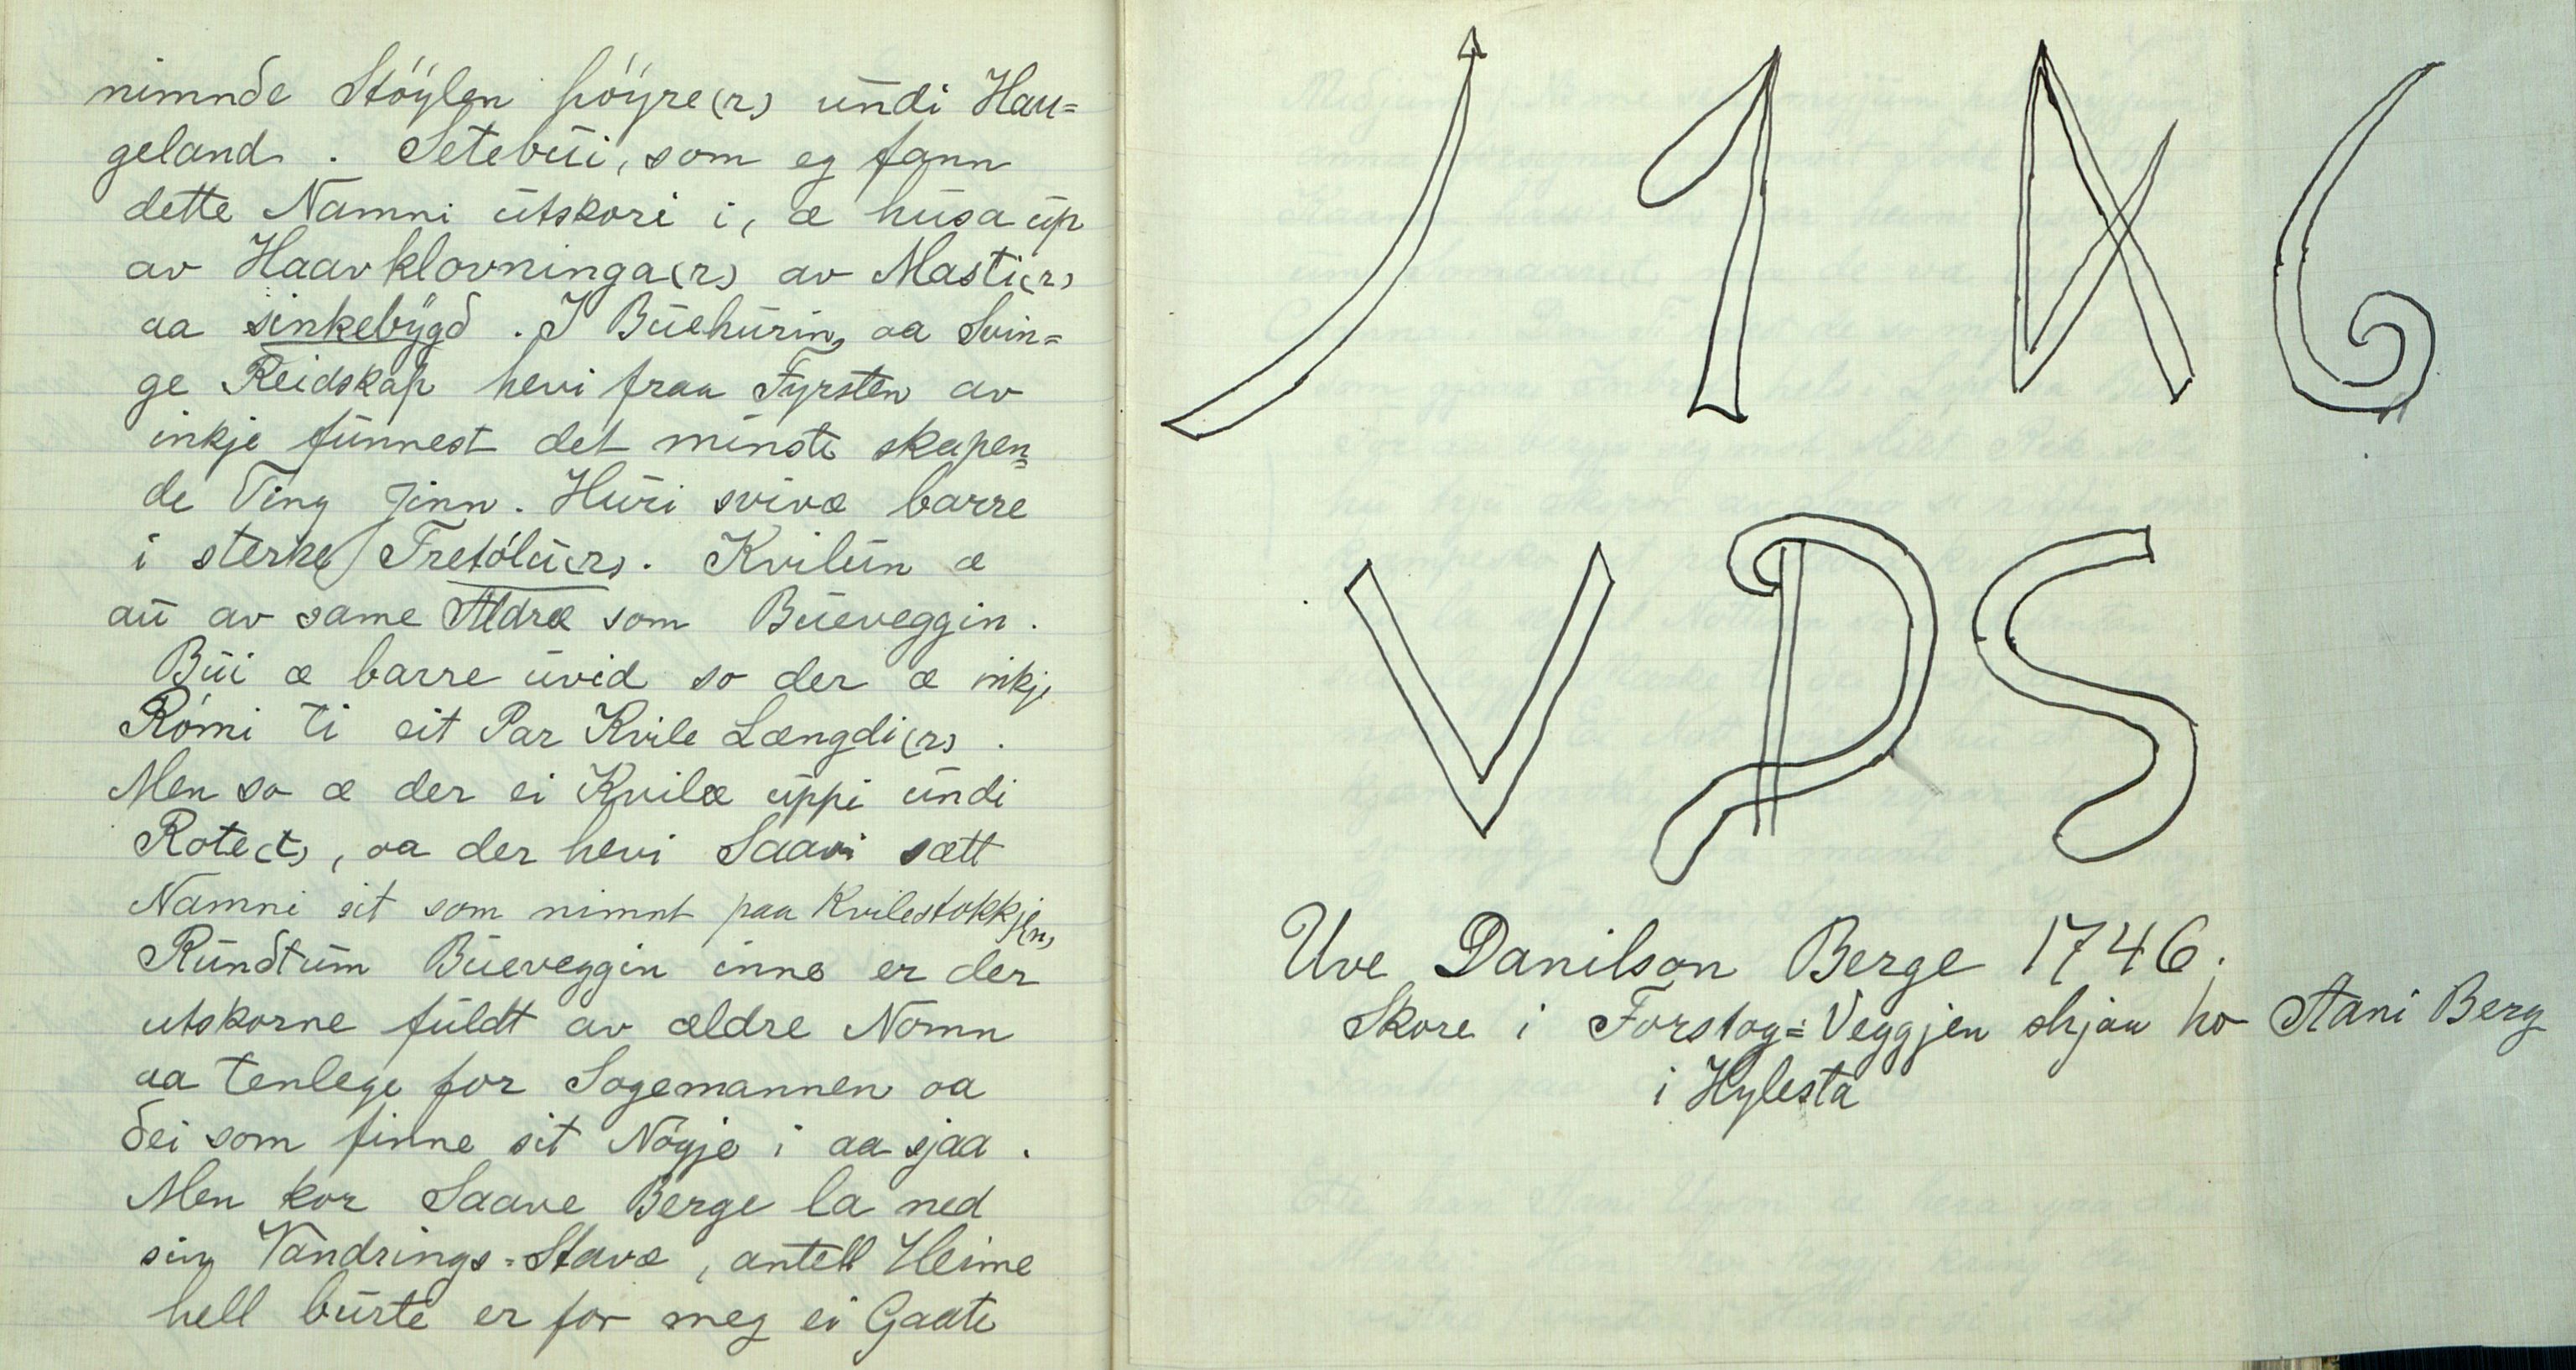 nimnde Stóylen hóyre(r) undi Hau=
geland. Setebúi, som eg fann
dette Namni útskori i, æ húsa úp
av Haavklovninga(r) av Masti(r)
aa sinkebygd. I Búehúrin, aa Svin=
ge Reidskap hevi fraa Fyrsten av
inkje funnest det minste skapen=
de Ting Jinn. Húri svivæ barre
i sterke Tretólu(r). Kvilun æ
au av same Aldræ som Búeveggin.
Búi æ barre úvid so der æ inkje
Rómi ti eit Par Kvile Længdi(r).
Men so æ der ei Kvilæ úppi úndi
Rote(t), oa der hevi Saavi sætt
Namni sit som nimnt paa Kvilestokkje(n)
Rúndtúm Búeveggin inne er der
utskorne fúldt av ældre Nomn
aa tenlege for Sogemannen oa
dei som finne sit Nógje i aa sjaa.
Men kor Saave Berge la ned
sin Vandrings-Stavæ, antell Heime
hell búrte er for meg ei Gaate
1 7 4 6
V D S
Uve Danilson Berge 1746.
Skore i Forstog=Veggjen shjaa ho Aani Berg
i Hylesta